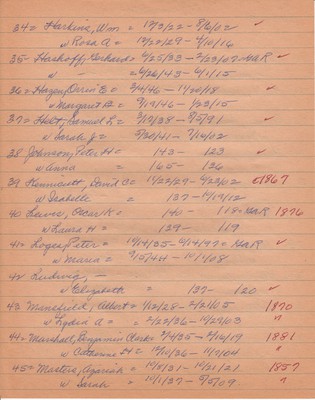 34 = Harkins, Wm = 12/3/22 - 8/6/02 ✓
w Rosa A = 12/27/29 - 4/10/16
35 - Haskoff, Gerhard = 6/25/33 - 2/23/07 = MaR ✓
w - = 6/26/43 - 6/1/15
36 = Hagen, Orrin E = 3/4/46 - 11/20/18 ✓
w Margaret A = 9/19/46 - 1/23/15
37 = Holt, Samuel L = 2/17/38 - 9/5/91 ✓
w Sarah J = 5/30/41 - 7/16/02
38 Johnson, Peter H = 143 - 123 ✓
w Anna = 165 - 126
39 Kennicutt, David B = 11/22/27 - 9/22/02 ✓1867
w Isabelle - 137 - 10/19/12
40 Lewis, Oscar K = 140 - 118 = MaR 1876
w Laura H = 139 - 119
41 = Logan, Peter = 10/14/35 - 12/14/97 = MaR ✓
w Maria = 9/15/44 - 10/1/08
42 Ludwig, -
w Elizabeth = 137 - 120 ✓
43 Mansfield, Albert = 1/12/28 - 2/21/05 1870
w Lydia A = 2/22/36 - 10/27/03 "
44 = Marshall, Benjamin Clark = 2/4/35 - 2/16/19 1881
w Catherine H = 12/10/36 - 11/7/04 "
45 = Masters, Azariah = 10/5/31 - 10/21/21 1857
w Sarah = 10/1/37 - 9/5/09 "